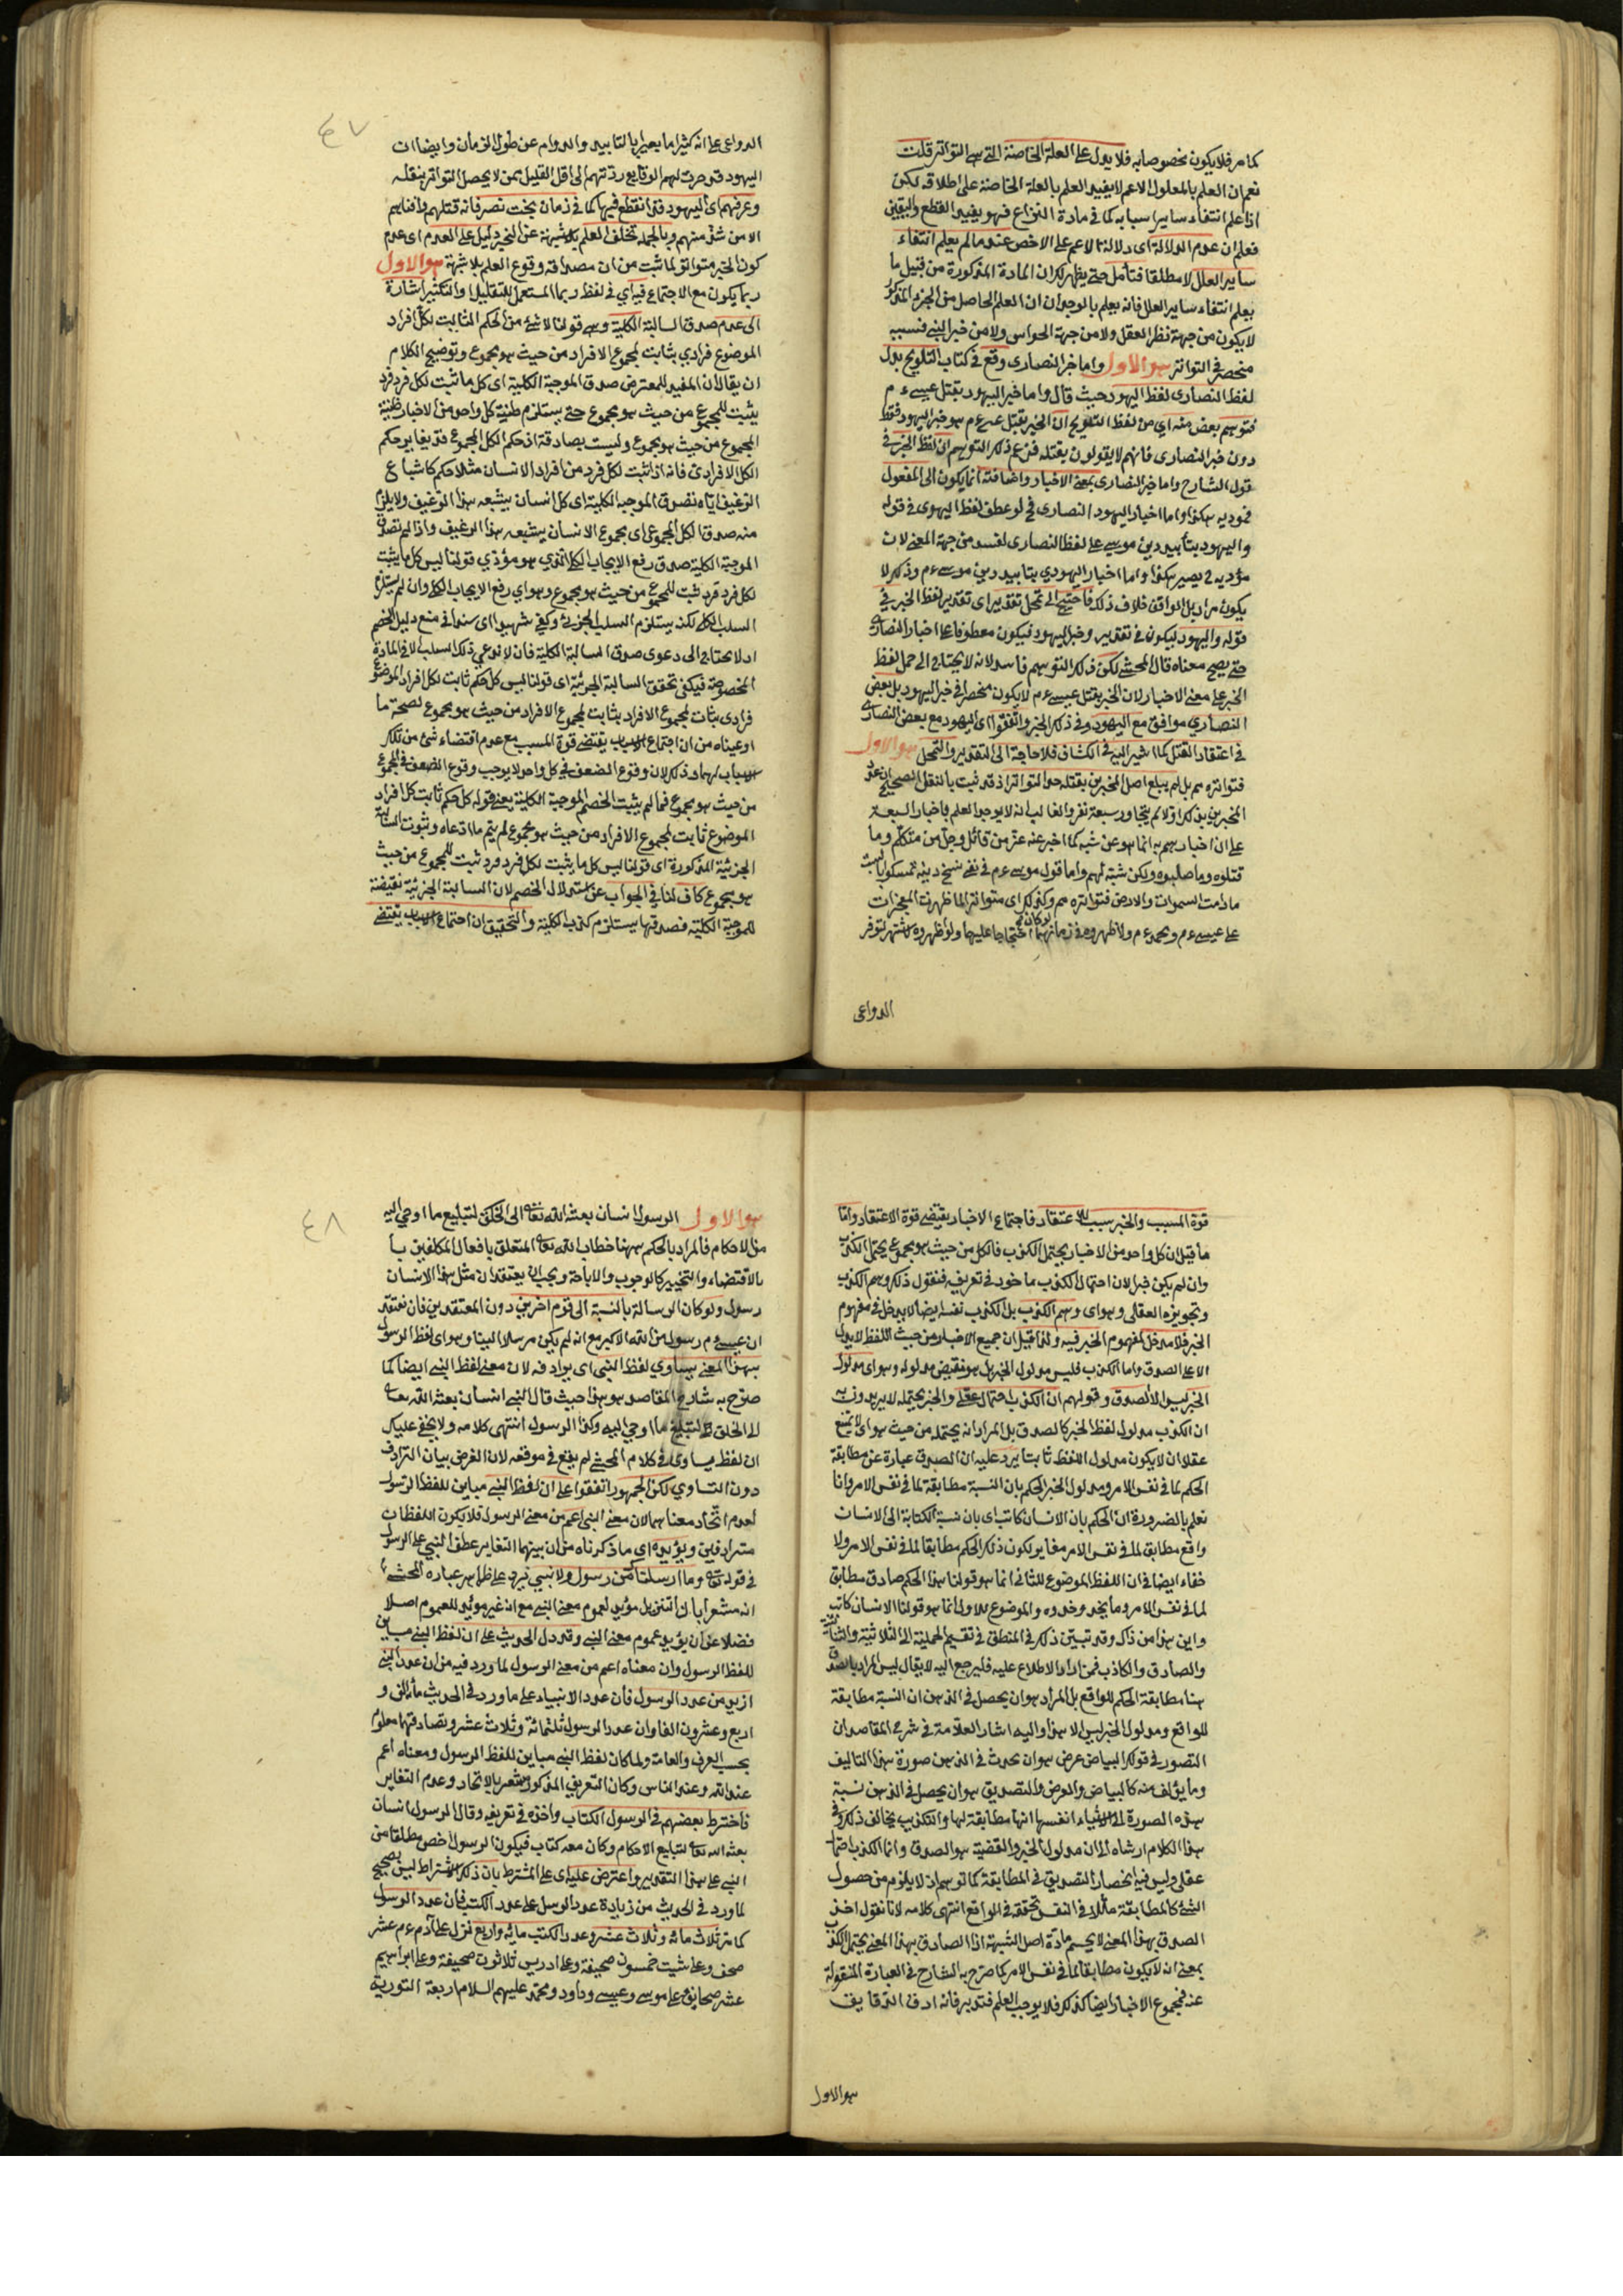 كما مر فلا يكون مخصوصا به فلا يدل على العلة الخاصة التي هي التواتر قلت
نعم ان العلم بالمعلول الاعم لا يفيد العلم بالعلة الخاصة على اطلاقه لكن
اذا علم انتفاء ساير اسبابه كما في مادة النزاع فهو يفيد القطع واليقين
فعلم ان عدم الدلالة اي دلالة الاعم على الاخص عند ما لم يعلم انتفاء
ساير العلل لا مطلقا فتأمل حتى يظهر لك ان المادة المذكورة من قبيل ما
يعلم انتفاء ساير العلل فانه يعلم بالوجدان ان العلم الحاصل من الجزم المذكور
لا يكون من جهة نظر العقل ولا من جهة الحواس ولا من خبر النبي فنسبه
منحصر في التواتر هو الاول واما خبر النصارى وقع في كتاب التلويح بدل
لفظ النصارى لفظ اليهود حيث قال واما خبر اليهود بقتل عيسى ع م
فتوهم بعض منه اي من لفظ التلويح ان الخبر بقتل ع م هو خبر اليهود فقط
دون خبر النصارى فانهم لا يقولون بقتله فزعم ذلك المتوهم ان لفظ الخبر في
قول الشارح واما خبر النصارى بمعنى الاخبار واضافته انما يكون الى المفعول
فمؤديه هكذا واما اخبار اليهود النصارى فح لو عطف لفظ اليهود في قوله
واليهود بتأبيد دين موسى على لفظ النصارى لفسد من جهة المعنى لان
مؤديه ح يصير هكذا واما اخبار اليهودي بتابيد دين موسى ع م وذلك لا
يكون مرادا بل الواقع خلاف ذلك فاحتيج الى تمحل تقدير اي تقدير لفظ الخبر في
قوله واليهود ليكون في تقدير وخبر اليهود فيكون معطوفا على اخبار النصارى
حتى يصح معناه قال المحشي لكن ذلك التوهم فاسد لانه لا يحتاج الى حمل لفظ
الخبر على معنى الاخبار لان الخبر بقتل عيسى ع م لا يكون منحصرا في خبر اليهود بل بعض
النصارى موافق مع اليهود في ذلك الخبر واتفقوا اي اليهود مع بعض النصارى
في اعتقاد القتل كما اشير اليه في الكشاف فلا حاجة الى التقدير والتمحل هو الاول
فتواتره مم بل لم يبلغ اصل المخبرين بقتله حد التواتر اذ قد ثبت بالنقل الصحيح ان عدد
المخبرين بذلك اولا لم يتجاوز سبعة نفر والغالب انه لا يوجد العلم باخبار السبعة
على ان اخبارهم به انما هو عن شبه كما اخبر عنه عز من قائل وجل من متكلم وما
قتلوه وما صلبوه ولكن شبه لهم واما قول موسى ع م في نفي نسخ دينه تمسكوا بالسبت
ما دامت السموات والارض فتواتره مم وكذلك اي متواترا لما ظهرت المعجزات
على عيسى ع م ومحمد ع م ولاظهروه في زمانهما احتجاجا عليهما ولو اظهروه لاشتهر لتوفر
الدواعي
٤٧
الدواعي على انه كثيرا ما يعبر بالتابيد والدوام عن طول الزمان وايضا ان
اليهود قد جرت لهم الوقايع ردتهم الى اقل القليل ممن لا يحصل التواتر بنقله
وعرفهم اي اليهود قد انقطع فيها كما في زمان بخت نصر فانه قتلهم وافناهم
الا من شذ منهم وبالجملة تخلف العلم بلا شبهة عن الخبر دليل على العدم اي عدم
كون الخبر متواترا لما ثبت من ان مصداقه وقوع العلم بلا شبهة هو الاول
ربما يكون مع الاجتماع فيه اي في لفظ ربما المستعمل للتقليل او التكثير اشارة
الى عدم صدق السالبة الكلية وهي قولنا لا شئ من الحكم الثابت لكل افراد
الموضوع فرادي بثابت لمجموع الافراد من حيث هو مجموع وتوضيح الكلام
ان يقال ان المفيد للمعترض صدق الموجبة الكلية اي كل ما ثبت لكل فرد فرد
يثبت للمجموع من حيث هو مجموع حتى يستلزم ظنية كل واحد من الاخبار ظنية
المجموع من حيث هو مجموع وليست بصادقة اذ حكم الكل المجموع قد يغاير حكم
الكل الافرادي فانه اذا ثبت لكل فرد من افراد الانسان مثلا حكم كاشباع
الرغيف اياه تصدق الموجبة الكلية اي كل انسان يشبعه هذا الرغيف ولا يلزم
منه صدق الكل المجموعي اي مجموع الانسان يشبعه هذا الرغيف واذا لم تصدق
الموجبة الكلية صدق رفع الايجاب الكلي الذي هو مؤدي قولنا ليس كل ما يثبت
لكل فرد فرد ثبت للمجموع من حيث هو مجموع وهو اي رفع الايجاب الكلي وان لم يستلزم
السلب الكلي لكنه يستلزم السلب الجزئي وكفى شهيدا اي سندا في منع دليل الخصم
اذ لا يحتاج الى دعوى صدق السالبة الكلية فان لا ندعي ذلك السلب الا في المادة
المخصوصة فيكفي تحقق السالبة الجزئية اي قولنا ليس كل حكم ثابت لكل افراد الموضوع
فرادى بثابت لمجموع الافراد بثابت لمجموع الافراد من حيث هو مجموع لصحة ما
ادعيناه من ان اجتماع الاسباب يقتضي قوة المسبب مع عدم اقتضاء شئ من تلك
الاسباب لها وذلك لان وقوع الضعف في كل واحد لا يوجب وقوع الضعف في المجموع
من حيث هو مجموع فما لم يثبت الخصم الموجبة الكلية يعني قوله كل حكم ثابت لكل افراد
الموضوع ثابت لمجموع الافراد من حيث هو مجموع لم يتم ما ادعاه وثبوت السالبة
الجزئية المذكورة اي قولنا ليس كل ما يثبت لكل فرد فرد ثبت للمجموع من حيث
هو مجموع كاف لنا في الجواب عن استدلال الخصم لان السالبة الجزئية نقيضة
للموجبة الكلية فصدقها يستلزم كذب الكلية والتحقيق ان اجتماع الاسباب يقتضي
قوة المسبب والخبر سبب للاعتقاد فاجتماع الاخبار يقتضي قوة الاعتقاد واما
ما قيل ان كل واحد من الاخبار يحتمل الكذب فالكل من حيث هو مجموع يحتمل الكذب
وان لم يكن خبرا لان احتمال الكذب ماخوذ في تعريفه فنقول ذلك وهم الكذب
وتجويزه العقلي وهو اي وهم الكذب بل الكذب نفسه ايضا لا يدخل في مفهوم
الخبر فلا مدخل لمفهوم الخبر فيه ولذا قيل ان جميع الاخبار من حيث اللفظ لا يدل
الا على الصدق واما الكذب فليس مدلول الخبر بل هو نقيض مدلوله وهو اي مدلول
الخبر ليس الا الصدق وقولهم ان الكذب احتمال عقلي والخبر يحتمله لا يريدون به
ان الكذب مدلول لفظ الخبر كالصدق بل المراد انه يحتمله من حيث هو اي لا يمتنع
عقلا ان لا يكون مدلول اللفظ ثابتا يرد عليه ان الصدق عبارة عن مطابقة
الحكم لما في نفس الامر ومدلول الخبر الحكم بان النسبة مطابقة لما في نفس الامر وانا
نعلم بالضرورة ان الحكم بان الانسان كاتب اي بان نسبة الكتابة الى الانسان
واقع مطابق لما في نفس الامر مغاير لكون ذلك الحكم مطابقا لما في نفس الامر ولا
خفاء ايضا في ان اللفظ الموضوع للثاني انما هو قولنا هذا الحكم صادق مطابق
لما في نفس الامر وما يحذو حذوه والموضوع للاول انما هو قولنا الانسان كاتب
واين هذا من ذاك وقد تبين ذلك في المنطق في تقسيم الحملية الى الثلاثية والثنائية
والصادق والكاذب فمن اراد الاطلاع عليه فليرجع اليه لا يقال ليس المراد بالصدق
هنا مطابقة الحكم للواقع بل المراد هو ان يحصل في الذهن ان النسبة مطابقة
للواقع ومدلول الخبر ليس الا هذا واليه اشار العلامة في شرح المقاصد ان
التصور في قولك البياض عرض هو ان يحدث في الذهن صورة هذا التاليف
وما يؤلف منه كالبياض والعرض والتصديق هو ان يحصل في الذهن نسبة
هذه الصورة الى الاشياء انفسها انها مطابقة لها والتكذيب يخالف ذلك وفي
هذا الكلام ارشاد الى ان مدلول الخبر والقضية هو الصدق وانما الكذب احتمال
عقلي وليس فيه انحصار التصديق في المطابقة كما توهم اذ لا يلزم من حصول
الشئ كالمطابقة مثلا في النفس تحققه في الواقع انتهى كلامه لانا نقول اخذ
الصدق بهذا المعنى لا يحسم مادة اصل الشبهة اذ الصادق بهذا المعنى يحتمل الكذب
بمعنى ان لا يكون مطابقا لما في نفس الامر كما صرح به الشارح في العبارة المنقولة
عنه فمجموع الاخبار ايضا كذلك فلا يوجب العلم فتدبر فانه ادق الدقايق
هو الاول
٤٨
هو الاول الرسول انسان بعثه الله تعالى الى الخلق لتبليغ ما اوحي اليه
من الاحكام فالمراد بالحكم ههنا خطاب الله تعالى المتعلق بافعال المكلفين با
بالاقتضاء والتخيير كالوجوب والاباحة ويجب ان يعتقد ان مثل هذا الانسان
رسول ولو كان الرسالة بالنسبة الى قوم اخرين دون المعتقدين فان نعتقد
ان عيسى ع م رسول من الله الاكبر مع انه لم يكن مرسلا الينا وهو اي لفظ الرسول
بهذا المعنى يساوي لفظ النبي اي يرادفه لان معنى لفظ النبي ايضا كما
صرح به شارح المقاصد هو هذا حيث قال النبي انسان بعثه الله تعالى
الى الخلق لتبليغ ما اوحي اليه وكذا الرسول انتهى كلامه ولا يخفى عليك
ان لفظ يساوي في كلام المحشي لم يقع في موقعه لان الغرض بيان الترادف
دون التساوي لكن الجمهور اتفقوا على ان لفظ النبي مباين للفظ الرسول
لعدم اتحاد معناهما لان معنى النبي اعم من معنى الرسول فلا يكون اللفظان
مترادفين ويؤيده اي ما ذكرناه من ان بينهما التغاير عطف النبي على الرسول
في قوله تعالى وما ارسلنا من رسول ولا نبي فيرد على ظاهر عباره المحشي
انه مشعر بان التنزيل مؤيد لعموم معنى النبي مع انه غير مؤيد للعموم اصلا
فضلا عن ان يؤيد عموم معنى النبي وقد دل الحديث على ان لفظ النبي مباين
للفظ الرسول وان معناه اعم من معنى الرسول لما ورد فيه من ان عدد النبي
ازيد من عدد الرسول فان عدد الانبياء على ما ورد في الحديث مأة الف و
اربع وعشرون الفا وان عدد الرسول ثلثمائة وثلاث عشر وتصادقهما معلوم
بحسب العرف والعادة ولما كان لفظ النبي مباين للفظ الرسول ومعناه اعم
عند الله وعند الناس وكان التعريف المذكور مشعر بالاتحاد وعدم التغاير
فاشترط بعضهم في الرسول الكتاب واخذه في تعريفه وقال الرسول انسان
بعثه الله تعالى لتبليغ الاحكام وكان معه كتاب فيكون الرسول اخص مطلقا من
النبي على هذا التقدير واعترض عليه اي على المشترط بان ذلك الاشتراط ليس بصحيح
لما ورد في الحديث من زيادة عدد الرسل على عدد الكتب فان عدد الرسول
كما مر ثلاث مائة وثلاث عشر وعدد الكتب مائة واربع نزل على آدم ع م عشر
صحف وعلى شيث خمسون صحيفة وعلى ادريس ثلاثون صحيفة وعلى ابراهيم
عشر صحايف وعلى موسى وعيسى وداود ومحمد عليهم السلام اربعة التورية